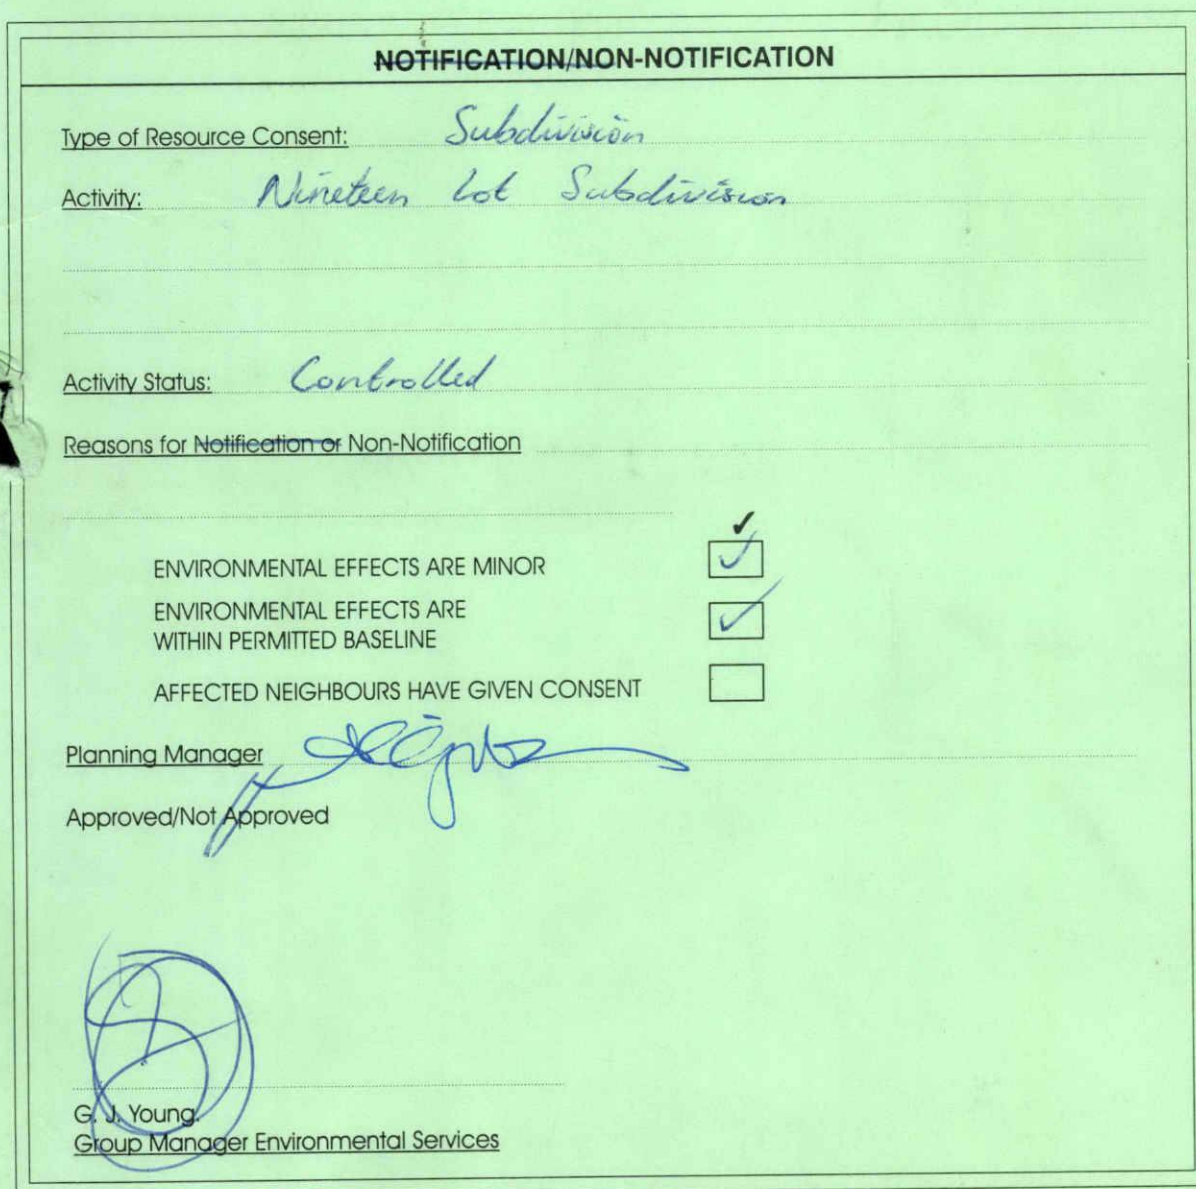 NOTIFICATION/NON-NOTIFICATION
Type of Resource Consent: Subdivision
Activity: Nineteen Lot Subdivision
Activity Status: Controlled
Reasons for Notification or Non-Notification
✓
ENVIRONMENTAL EFFECTS ARE MINOR ✓
ENVIRONMENTAL EFFECTS ARE
WITHIN PERMITTED BASELINE ✓
AFFECTED NEIGHBOURS HAVE GIVEN CONSENT
Planning Manager
Approved/Not Approved
G. J. Young.
Group Manager Environmental Services